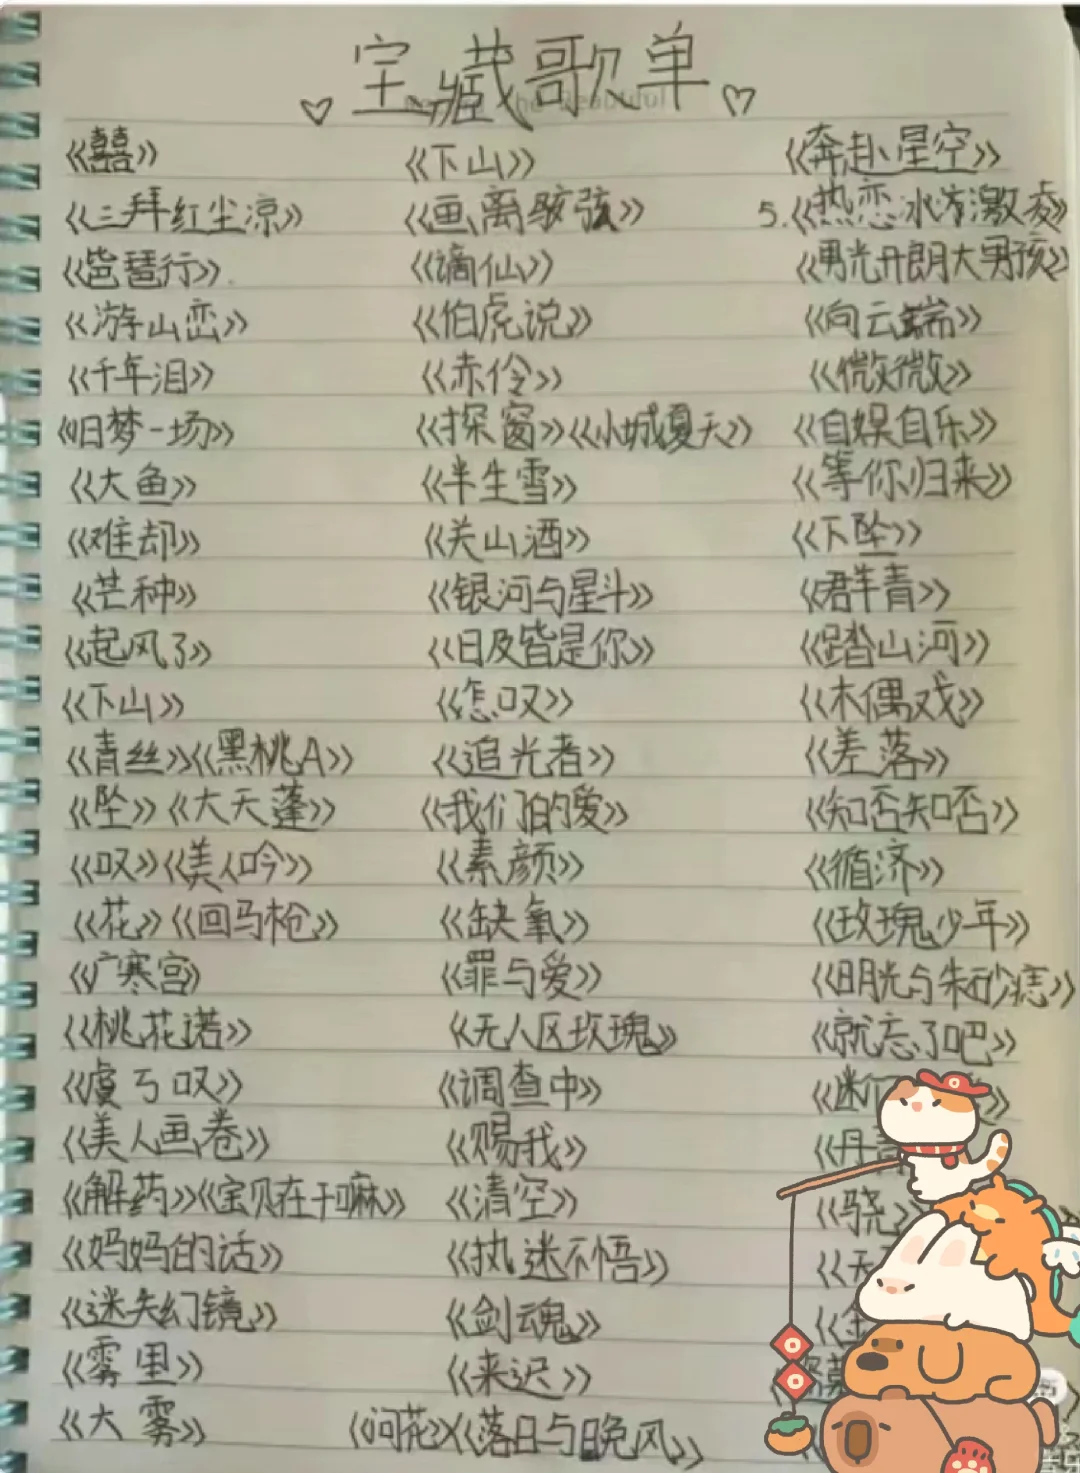 宝藏歌单
《囍》 《下山》 《奔赴星空》
《三拜红尘凉》 《画离骇弦》 5.《热恋冰淇激凌》
《琵琶行》. 《谪仙》 《男光开朗大男孩》
《游山恋》 《伯虎说》 《向云端》
《千年泪》 《赤伶》 《微微》
《旧梦一场》 《探窗》《小城夏天》 《自娱自乐》
《大鱼》 《半生雪》 《等你归来》
《难却》 《关山酒》 《下坠》
《芒种》 《银河与星斗》 《君羊青》
《起风了》 《目及皆是你》 《踏山河》
《下山》 《怎叹》 《木偶戏》
《青丝》《黑桃A》 《追光者》 《差落》
《坠》《大天蓬》 《我们的爱》 《知否知否》
《叹》《美人吟》 《素颜》 《循济》
《花》《回马枪》 《缺氧》 《玫瑰少年》
《广寒宫》 《罪与爱》 《明光与朱砂痣》
《桃花诺》 《无人区玫瑰》 《就忘了吧》
《虞兮叹》 《调查中》
《美人画卷》 《赐我》
《解药》《宝贝在干嘛》 《清空》 《骁》
《妈妈的话》 《执迷不悟》
《迷失幻镜》 《剑魂》
《雾里》 《来迟》
《大雾》 《问花》《落日与晚风》